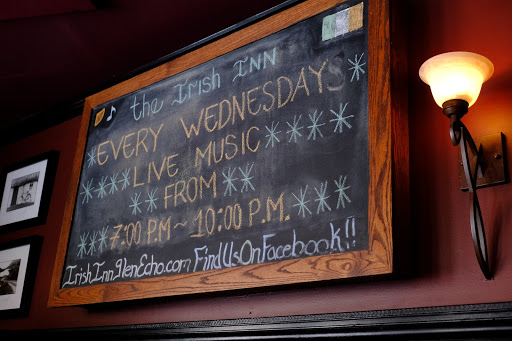 the Irish Inn
EVERY WEDNESDAY
LIVE MUSIC
FROM
7:00 P.M ~ 10:00 P.M.
IrishInnGlenEcho.com FindUsOnFacebook!!